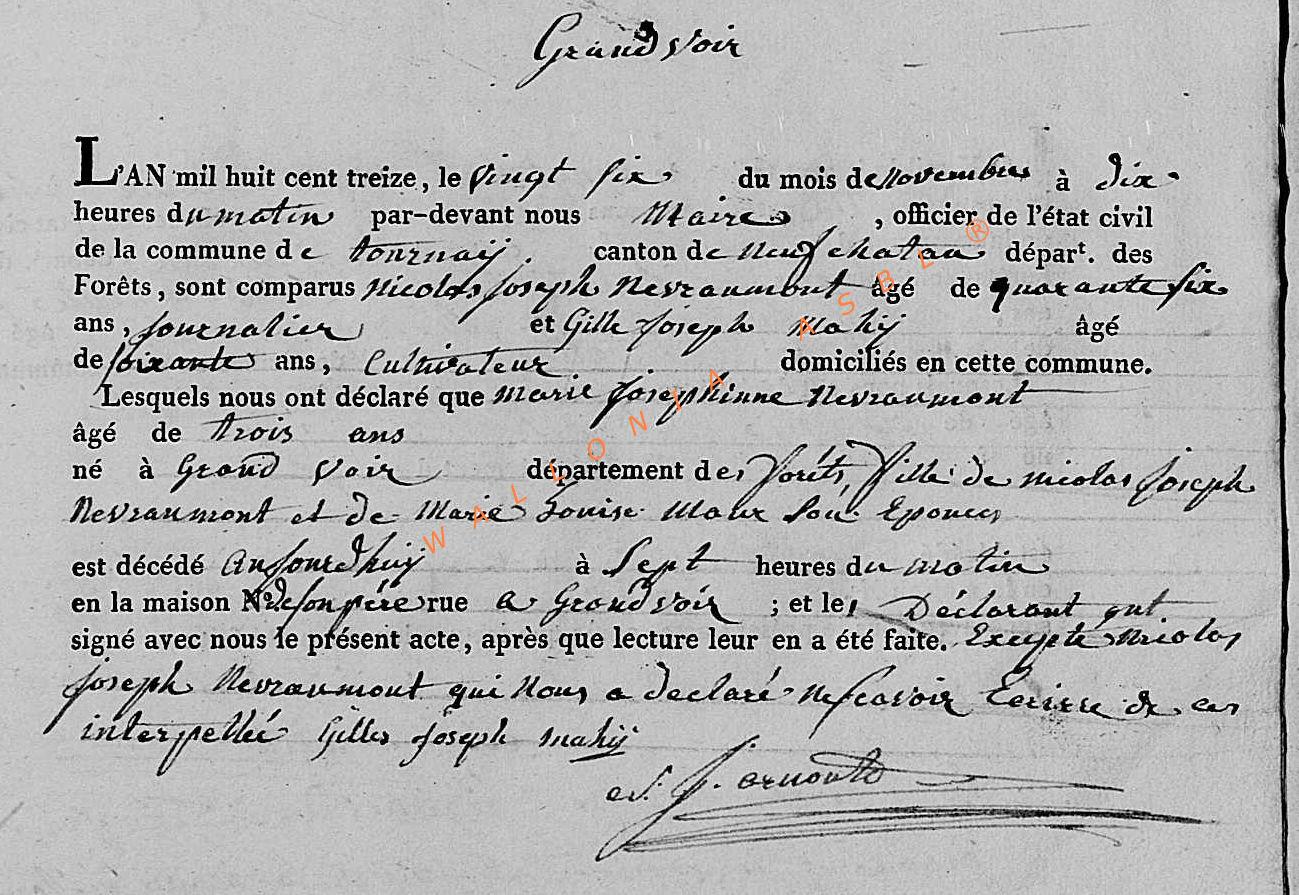 Grand voir
L'AN mil huit cent treize, le vingt six du mois de novembres à dix
heures du matin par-devant nous Maire , officier de l'état civil
de la commune de tournaij . canton de neufchatau départ. des
Forêts, sont comparus Nicolas Joseph Nevraumont âgé de quarante six
ans, journalier et Gille Joseph Mahij âgé
de soixante ans, Cultivateur domiciliés en cette commune.
Lesquels nous ont déclaré que marie josephinne Nevraumont
âgé de trois ans
né à Grand Voir département des forêts, fille de nicolas joseph
Nevraumont et de Marie Louise Maux Epouces
est décédé aujourdhuij à Sept heures du matin
en la maison No. de son père rue a Grandvoir ; et les Déclarant ont
signé avec nous le présent acte, après que lecture leur en a été faite. Excepté Nicolas
joseph Nevraumont qui Nous a declaré ne scavoir Ecrirre de ce
interpellé Gilles joseph mahij
J. arnould
WALLONIA ASBL ®